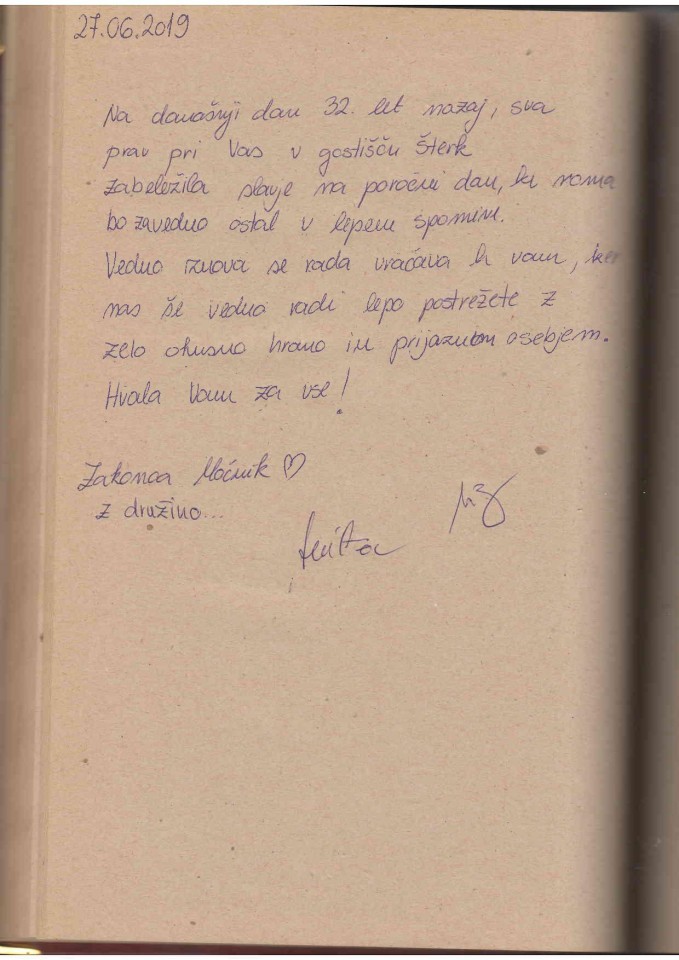 27.06.2019
Na današnji dan 32. let nazaj, sva
prav pri Vas v gostišču Šterk
zabeležila slavje na poročni dan, ki nama
bo zavedno ostal v lepem spominu.
Vedno znova se rada vračava k vam, ker
nas še vedno radi lepo postrežete z
zelo okusno hrano in prijaznim osebjem.
Hvala Vam za vse!
Zakonca Močnik ♡
z družino...